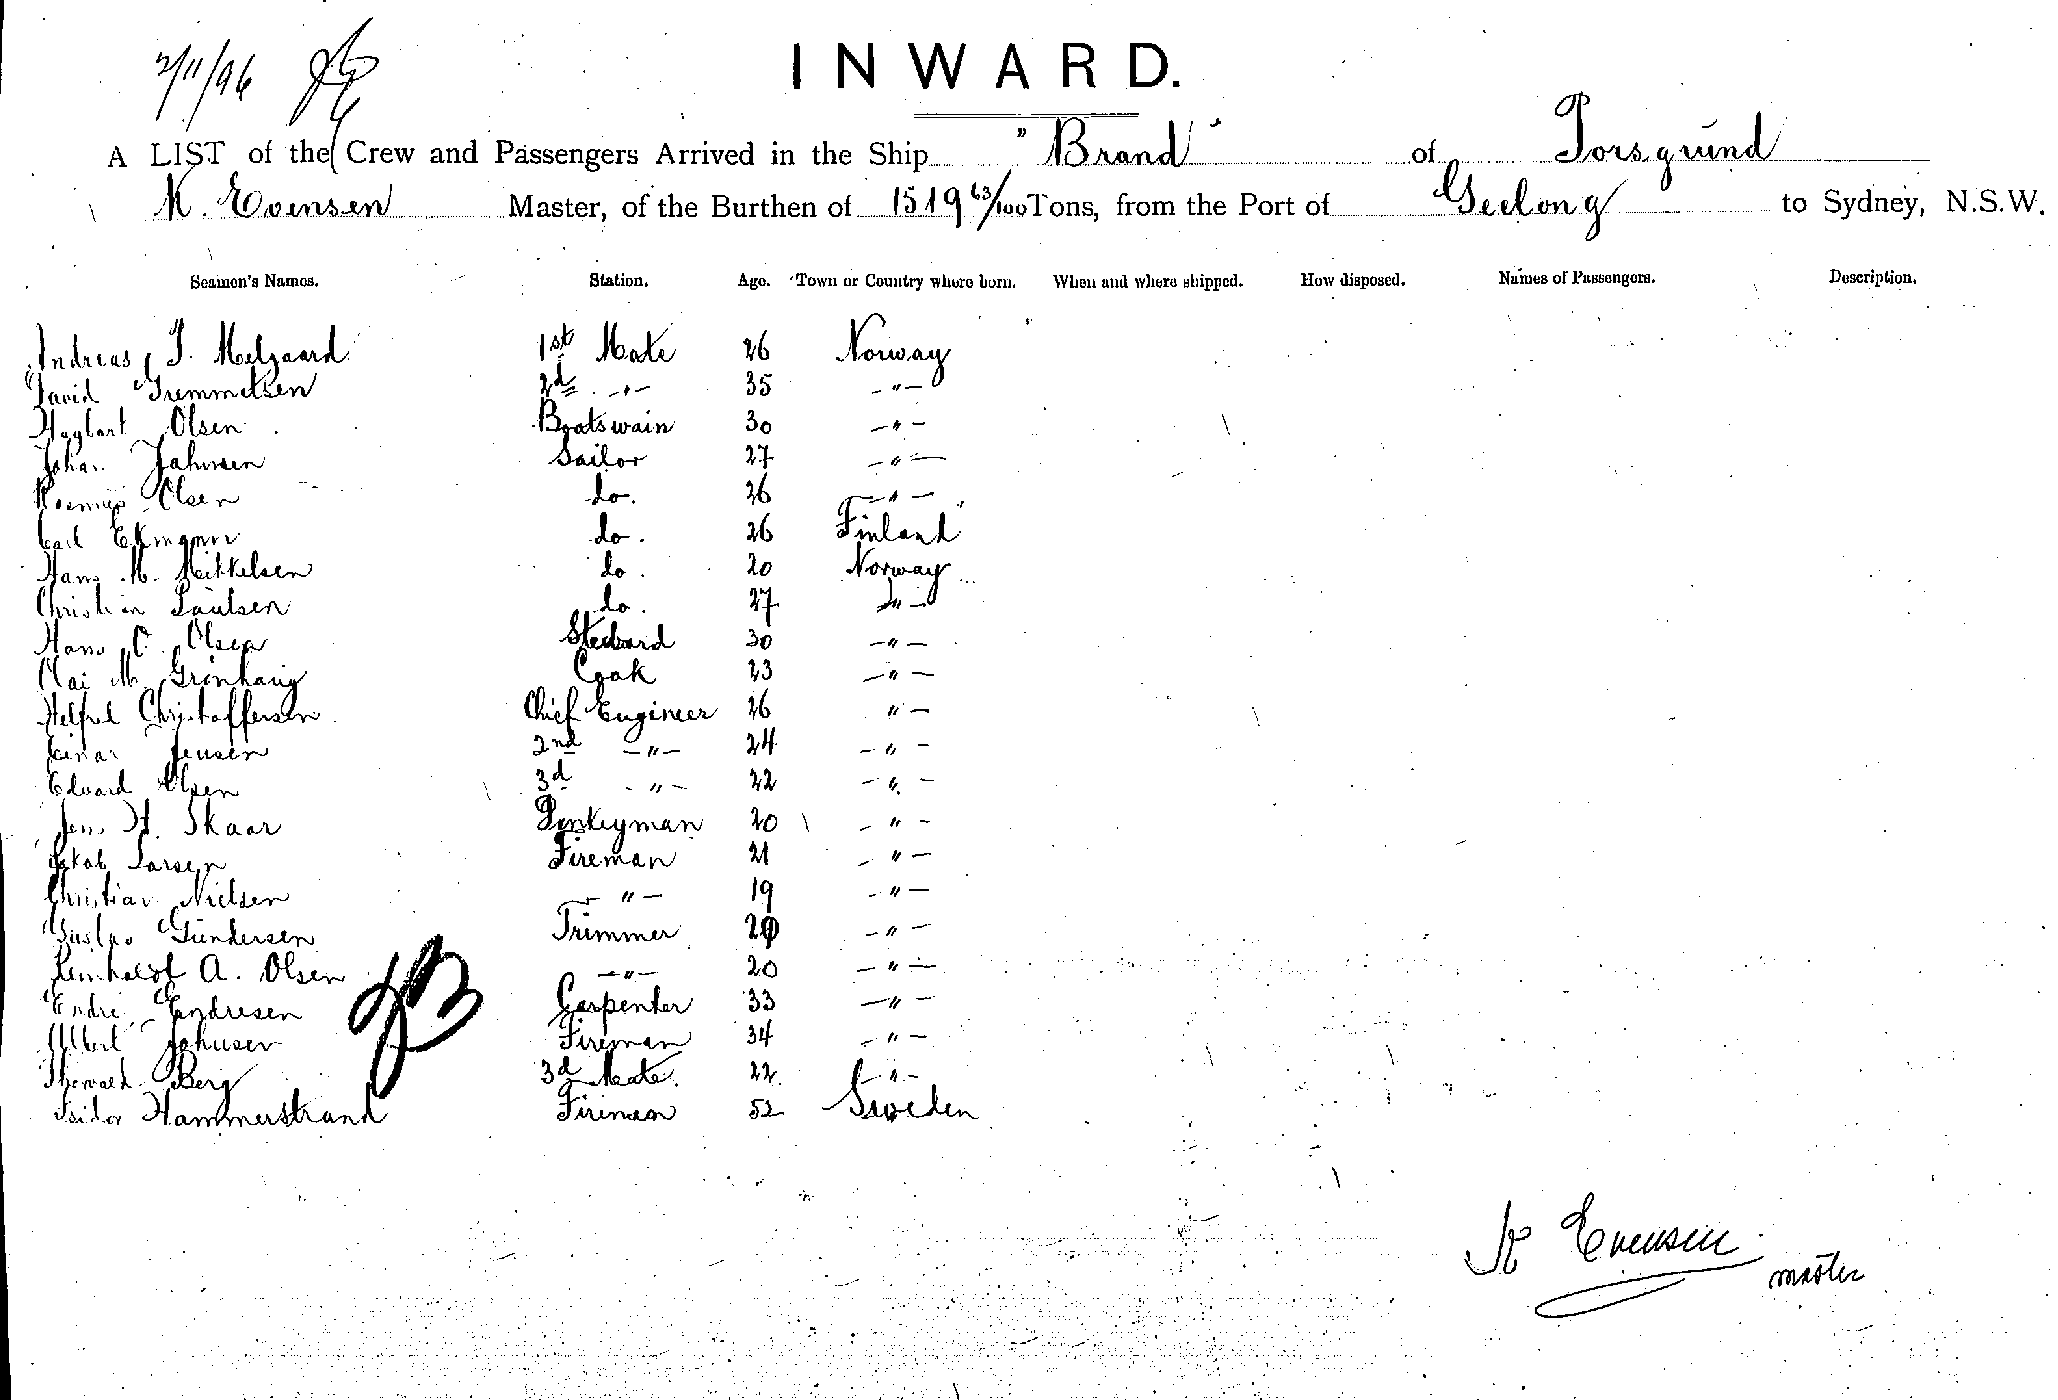 2/11/96
INWARD.
A LIST of the Crew and Passengers Arrived in the Ship "Brand" of Porsgrund
K. Evensen Master, of the Burthen of 1519 63/100 Tons, from the Port of Geelong to Sydney, N.S.W.
Seamen's Names. Station. Age. Town or Country where born. When and where shipped. How disposed. Names of Passengers. Description.
Andreas J. Melgaard 1st Mate 26 Norway
David Tremmelsen 2d -"- 35 -"-
Hagbart Olsen Boatswain 30 -"-
Johan Jahnsen Sailor 27 -"-
Rasmus Olsen do. 26 -"-
Carl Ekmann do. 26 Finland
Hans M. Mikkelsen do. 20 Norway
Christian Paulsen do. 27 -"-
Hans C. Olsen Steward 30 -"-
Olai M. Grönhaug Cook 23 -"-
Helfred Christoffersen Chief Engineer 26 "-
Einar Jensen 2nd -"- 24 -"-
Edvard Olsen 3d -"- 22 -"-
Jens H. Skaar Donkeyman 20 -"-
Jakob Larsen Fireman 21 -"-
Christian Nielsen -"- 19 -"-
Gustav Gundersen Trimmer 20 -"-
Reinholdt A. Olsen -"- 20 -"-
Endre Endresen Carpenter 33 -"-
Albert Johnsen Fireman 34 -"-
Thorvald Berg 3d Mate. 22 -"-
Isidor Hammerstrand Fireman 52 Sweden
K Evensen
master